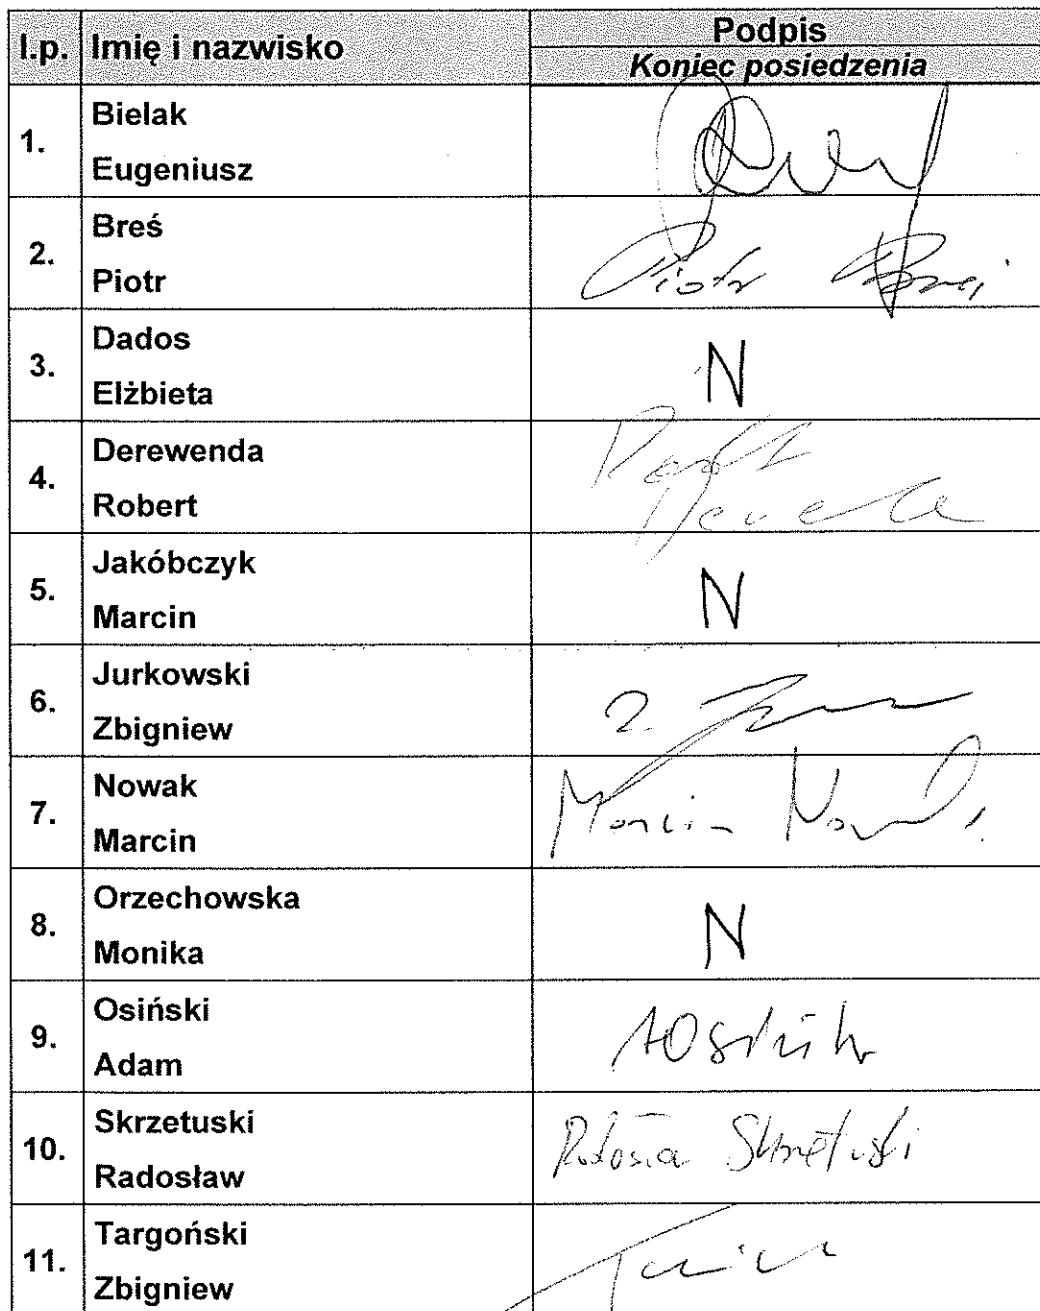 l.p. Imię i nazwisko Podpis
Koniec posiedzenia
1. Bielak
Eugeniusz
2. Breś
Piotr
Piotr
3. Dados
Elżbieta
N
4. Derewenda
Robert
5. Jakóbczyk
Marcin
N
6. Jurkowski
Zbigniew
7. Nowak
Marcin
Marcin Nowak
8. Orzechowska
Monika
N
9. Osiński
Adam
10. Skrzetuski
Radosław
Skrzetuski
11. Targoński
Zbigniew